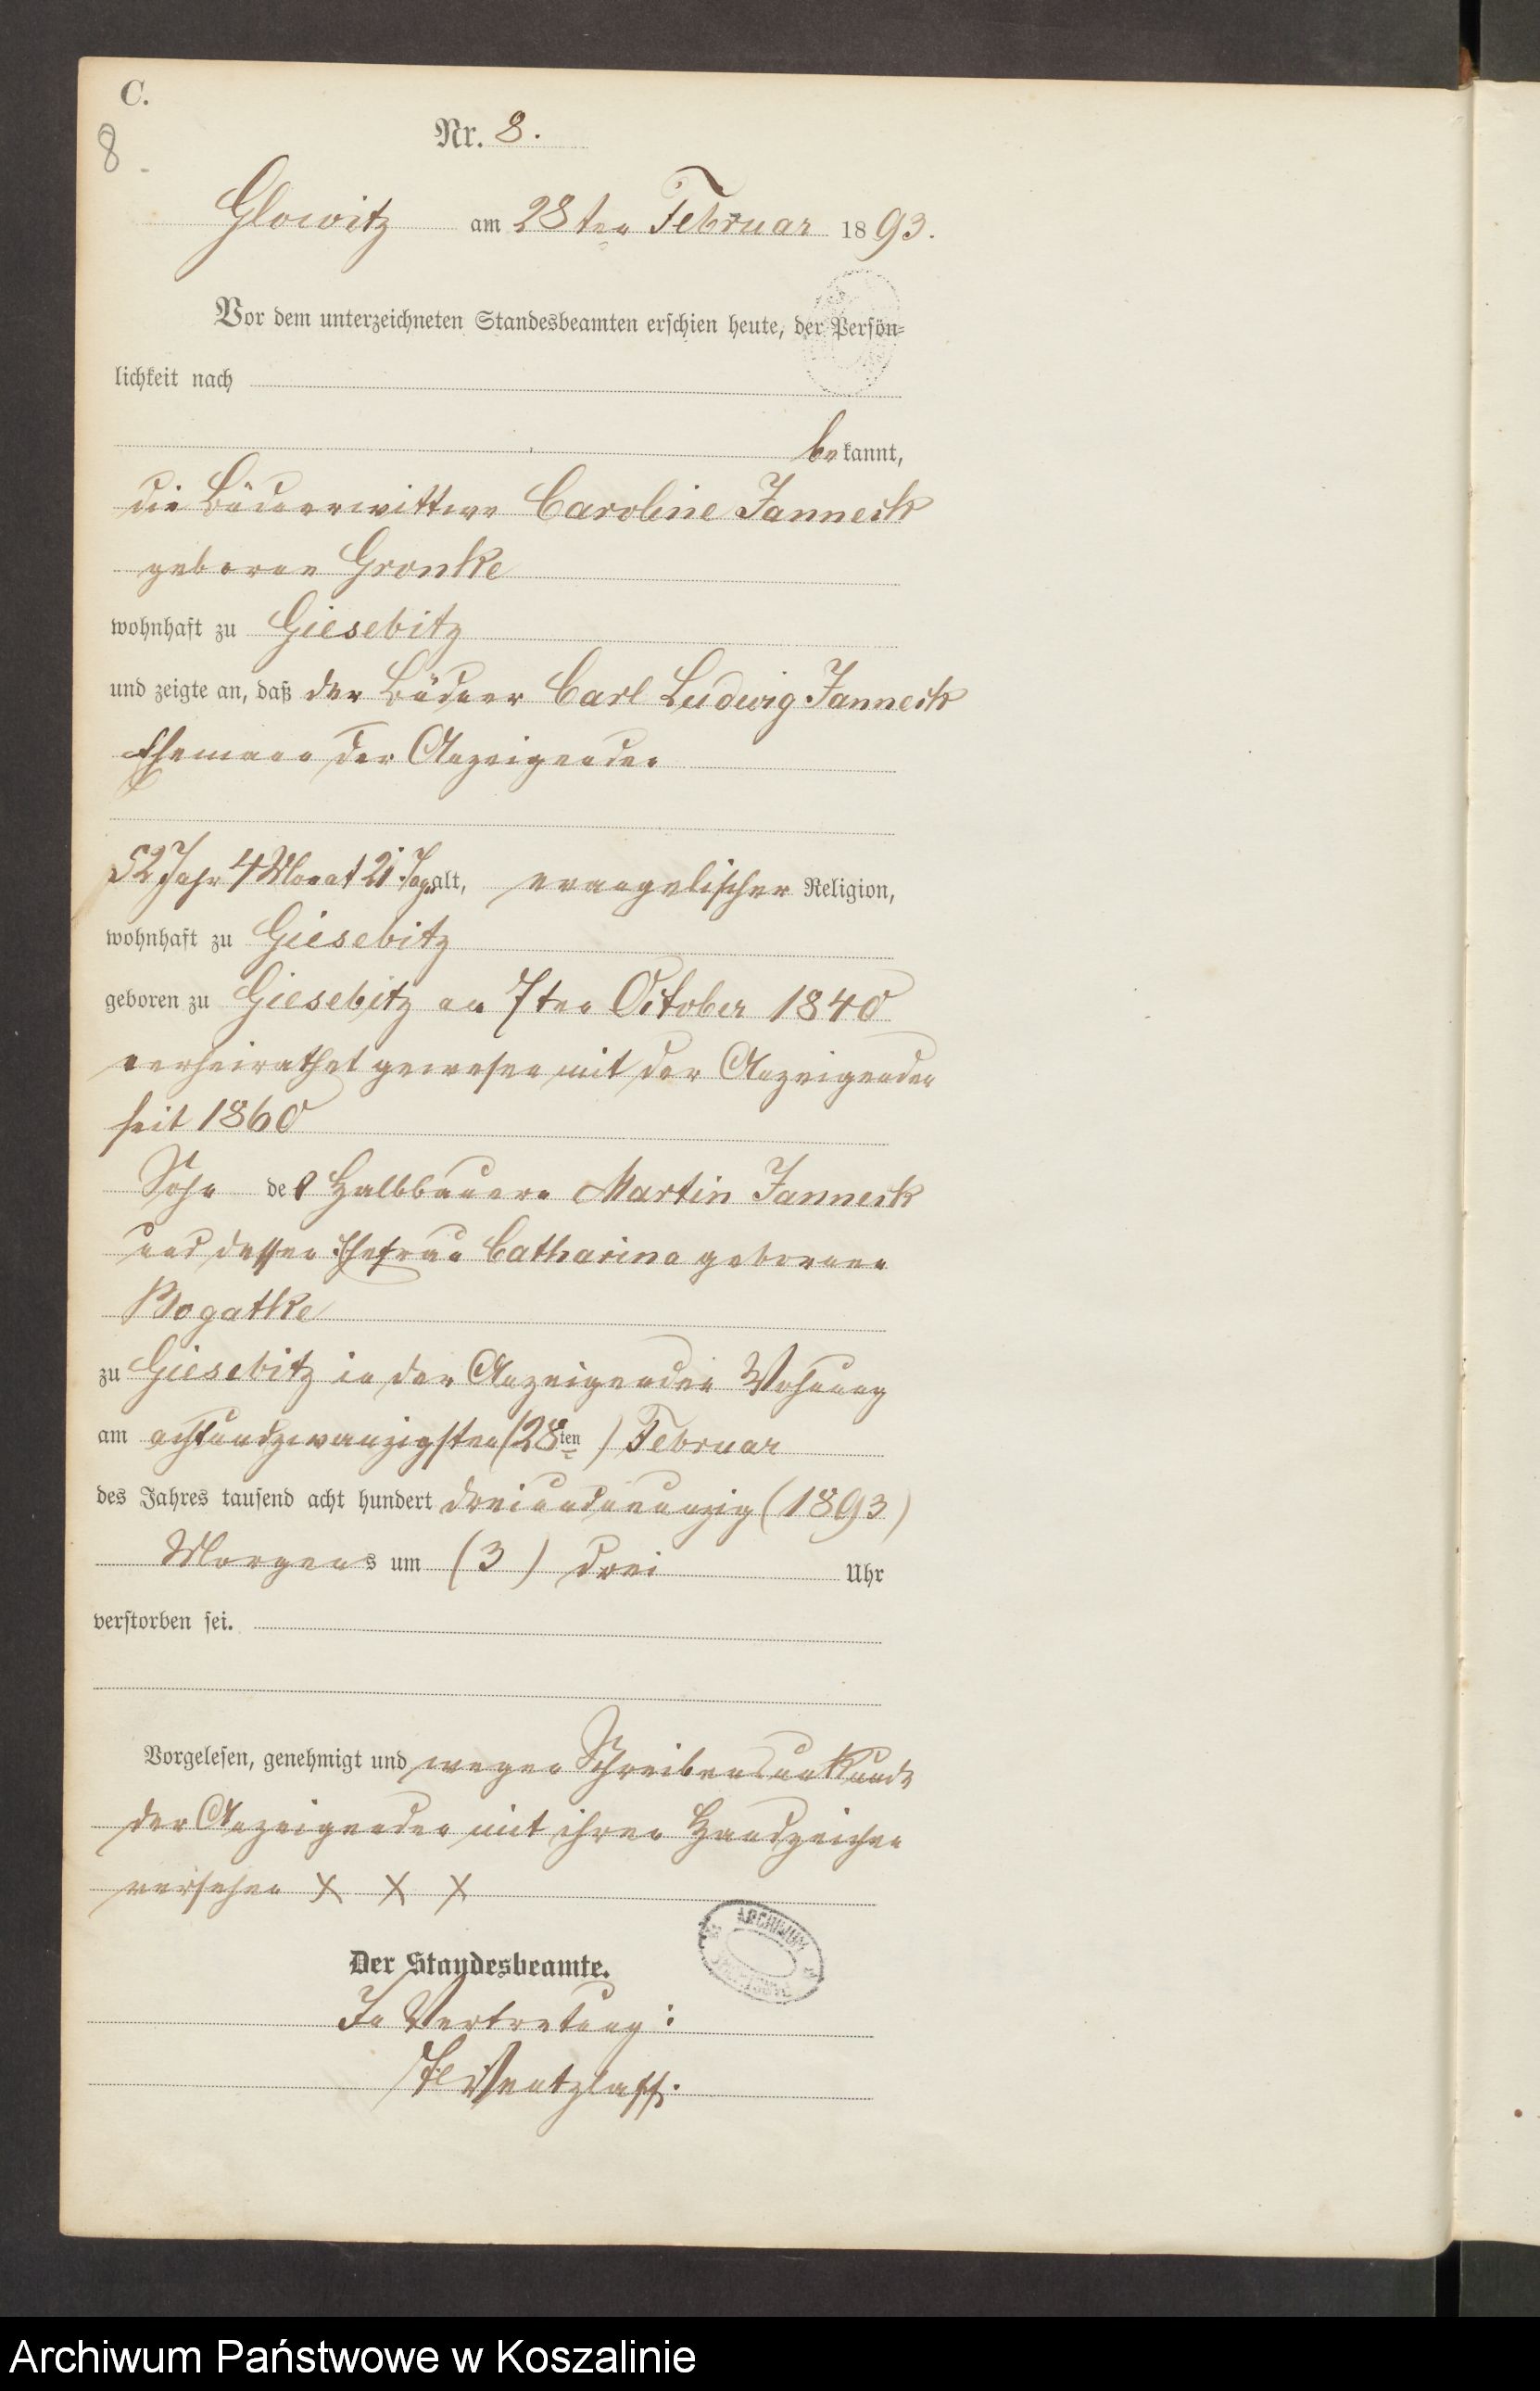 C.
8
Nr. 8.
Glowitz am 28ten Februar 1893.
Vor dem unterzeichneten Standesbeamten erschien heute, der Persön=
lichkeit nach
bekannt,
die Büdnerwittwe Caroline Janneck
geborne Gronke
wohnhaft zu Giesebitz
und zeigte an, daß der Büdner Carl Ludwig Janneck
Ehemann der Anzeigenden
52 Jahr 4 Monat 21 Tage alt, evangelischer Religion,
wohnhaft zu Giesebitz
geboren zu Giesebitz am 7ten October 1840
verheirathet gewesen mit der Anzeigenden
seit 1860
Sohn des Halbbauern Martin Janneck
und dessen Ehefrau Catharina gebornen
Bogatke
zu Giesebitz in der Anzeigenden Wohnung
am achtundzwanzigsten (28ten) Februar
des Jahres tausend acht hundert dreiundneunzig (1893)
Morgens um (3) drei Uhr
verstorben sei.
Vorgelesen, genehmigt und wegen Schreibensunkunde
der Anzeigenden mit ihren Handzeichen
versehen X X X
ARCHIWUM
Der Standesbeamte.
In Vertretung:
Wentzlaff.
Archiwum Państwowe w Koszalinie